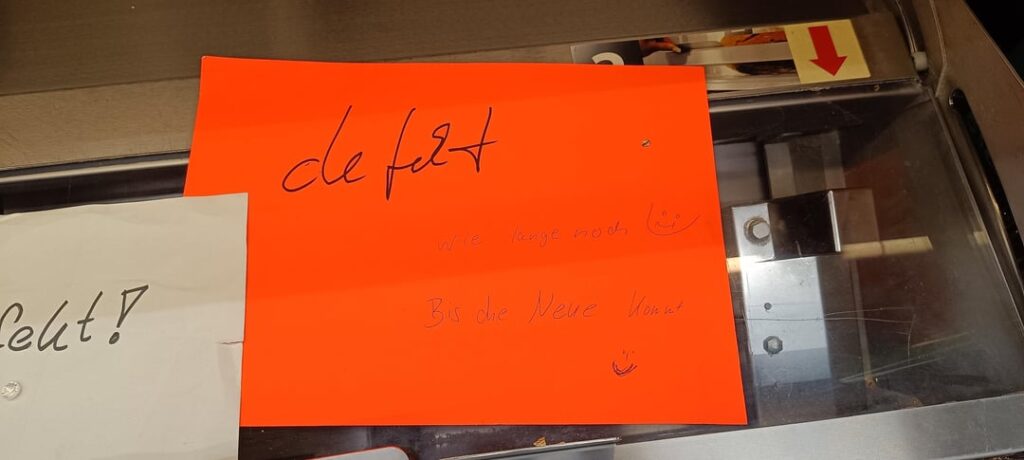 defekt
wie lange noch
Bis die Neue kommt
fekt!